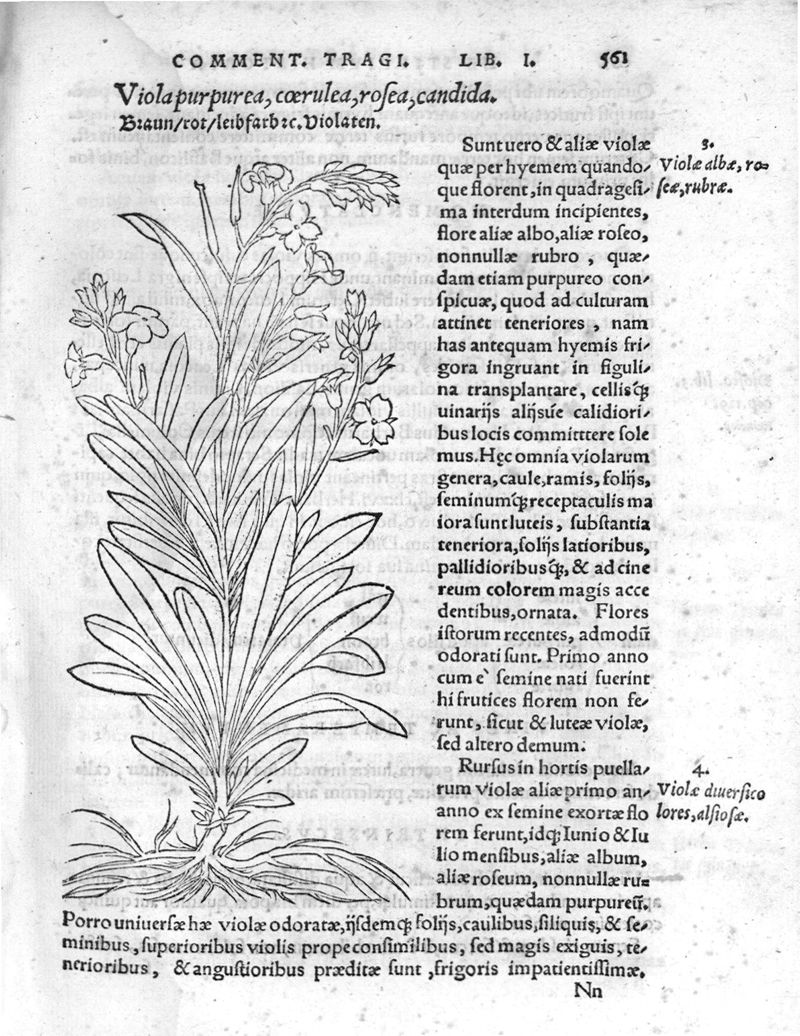 COMMENT. TRAGI. LIB. I. 561
Viola purpurea, cœrulea, rosea, candida.
Braun/rot/leibfarbꝛc. Violaten.
Sunt uero & aliæ uiolæ
quæ per hyemem quando/
que florent, in quadragesi/
ma interdum incipientes,
flore aliæ albo, aliæ roseo,
nonnullæ rubro, quæ/
dam etiam purpureo con/
spicuæ, quod ad culturam
attinet teneriores, nam
has antequam hyemis fri/
gora ingruant in figuli/
na transplantare, cellisq́;
uinarijs alijsúe calidiori/
bus locis committtere sole
mus. Hęc omnia uiolarum
genera, caule, ramis, folijs,
seminumq́; receptaculis ma
iora sunt luteis, substantia
teneriora, folijs latioribus,
pallidioribusq́;, & ad cine
reum colorem magis acce
dentibus, ornata. Flores
istorum recentes, admodũ
odorati sunt. Primo anno
cum è semine nati fuerint
hi frutices florem non fe/
runt, sicut & luteæ uiolæ,
sed altero demum.
3.
Violæ albæ, ro=
seæ, rubræ.
Rursus in hortis puella/
rum uiolæ aliæ primo an/
anno ex semine exortæ flo
rem ferunt, idq́; Iunio & Iu
lio mensibus, aliæ album,
aliæ roseum, nonnullæ ru=
brum, quædam purpureũ.
4.
Violæ diuersico
lores, alsiosæ.
Porro uniuersæ hæ uiolæ odoratæ, ijsdemq́; folijs, caulibus, siliquis, & se/
minibus, superioribus uiolis prope consimilibus, sed magis exiguis, te/
nerioribus, & angustioribus præditæ sunt, frigoris impatientissimæ.
Nn